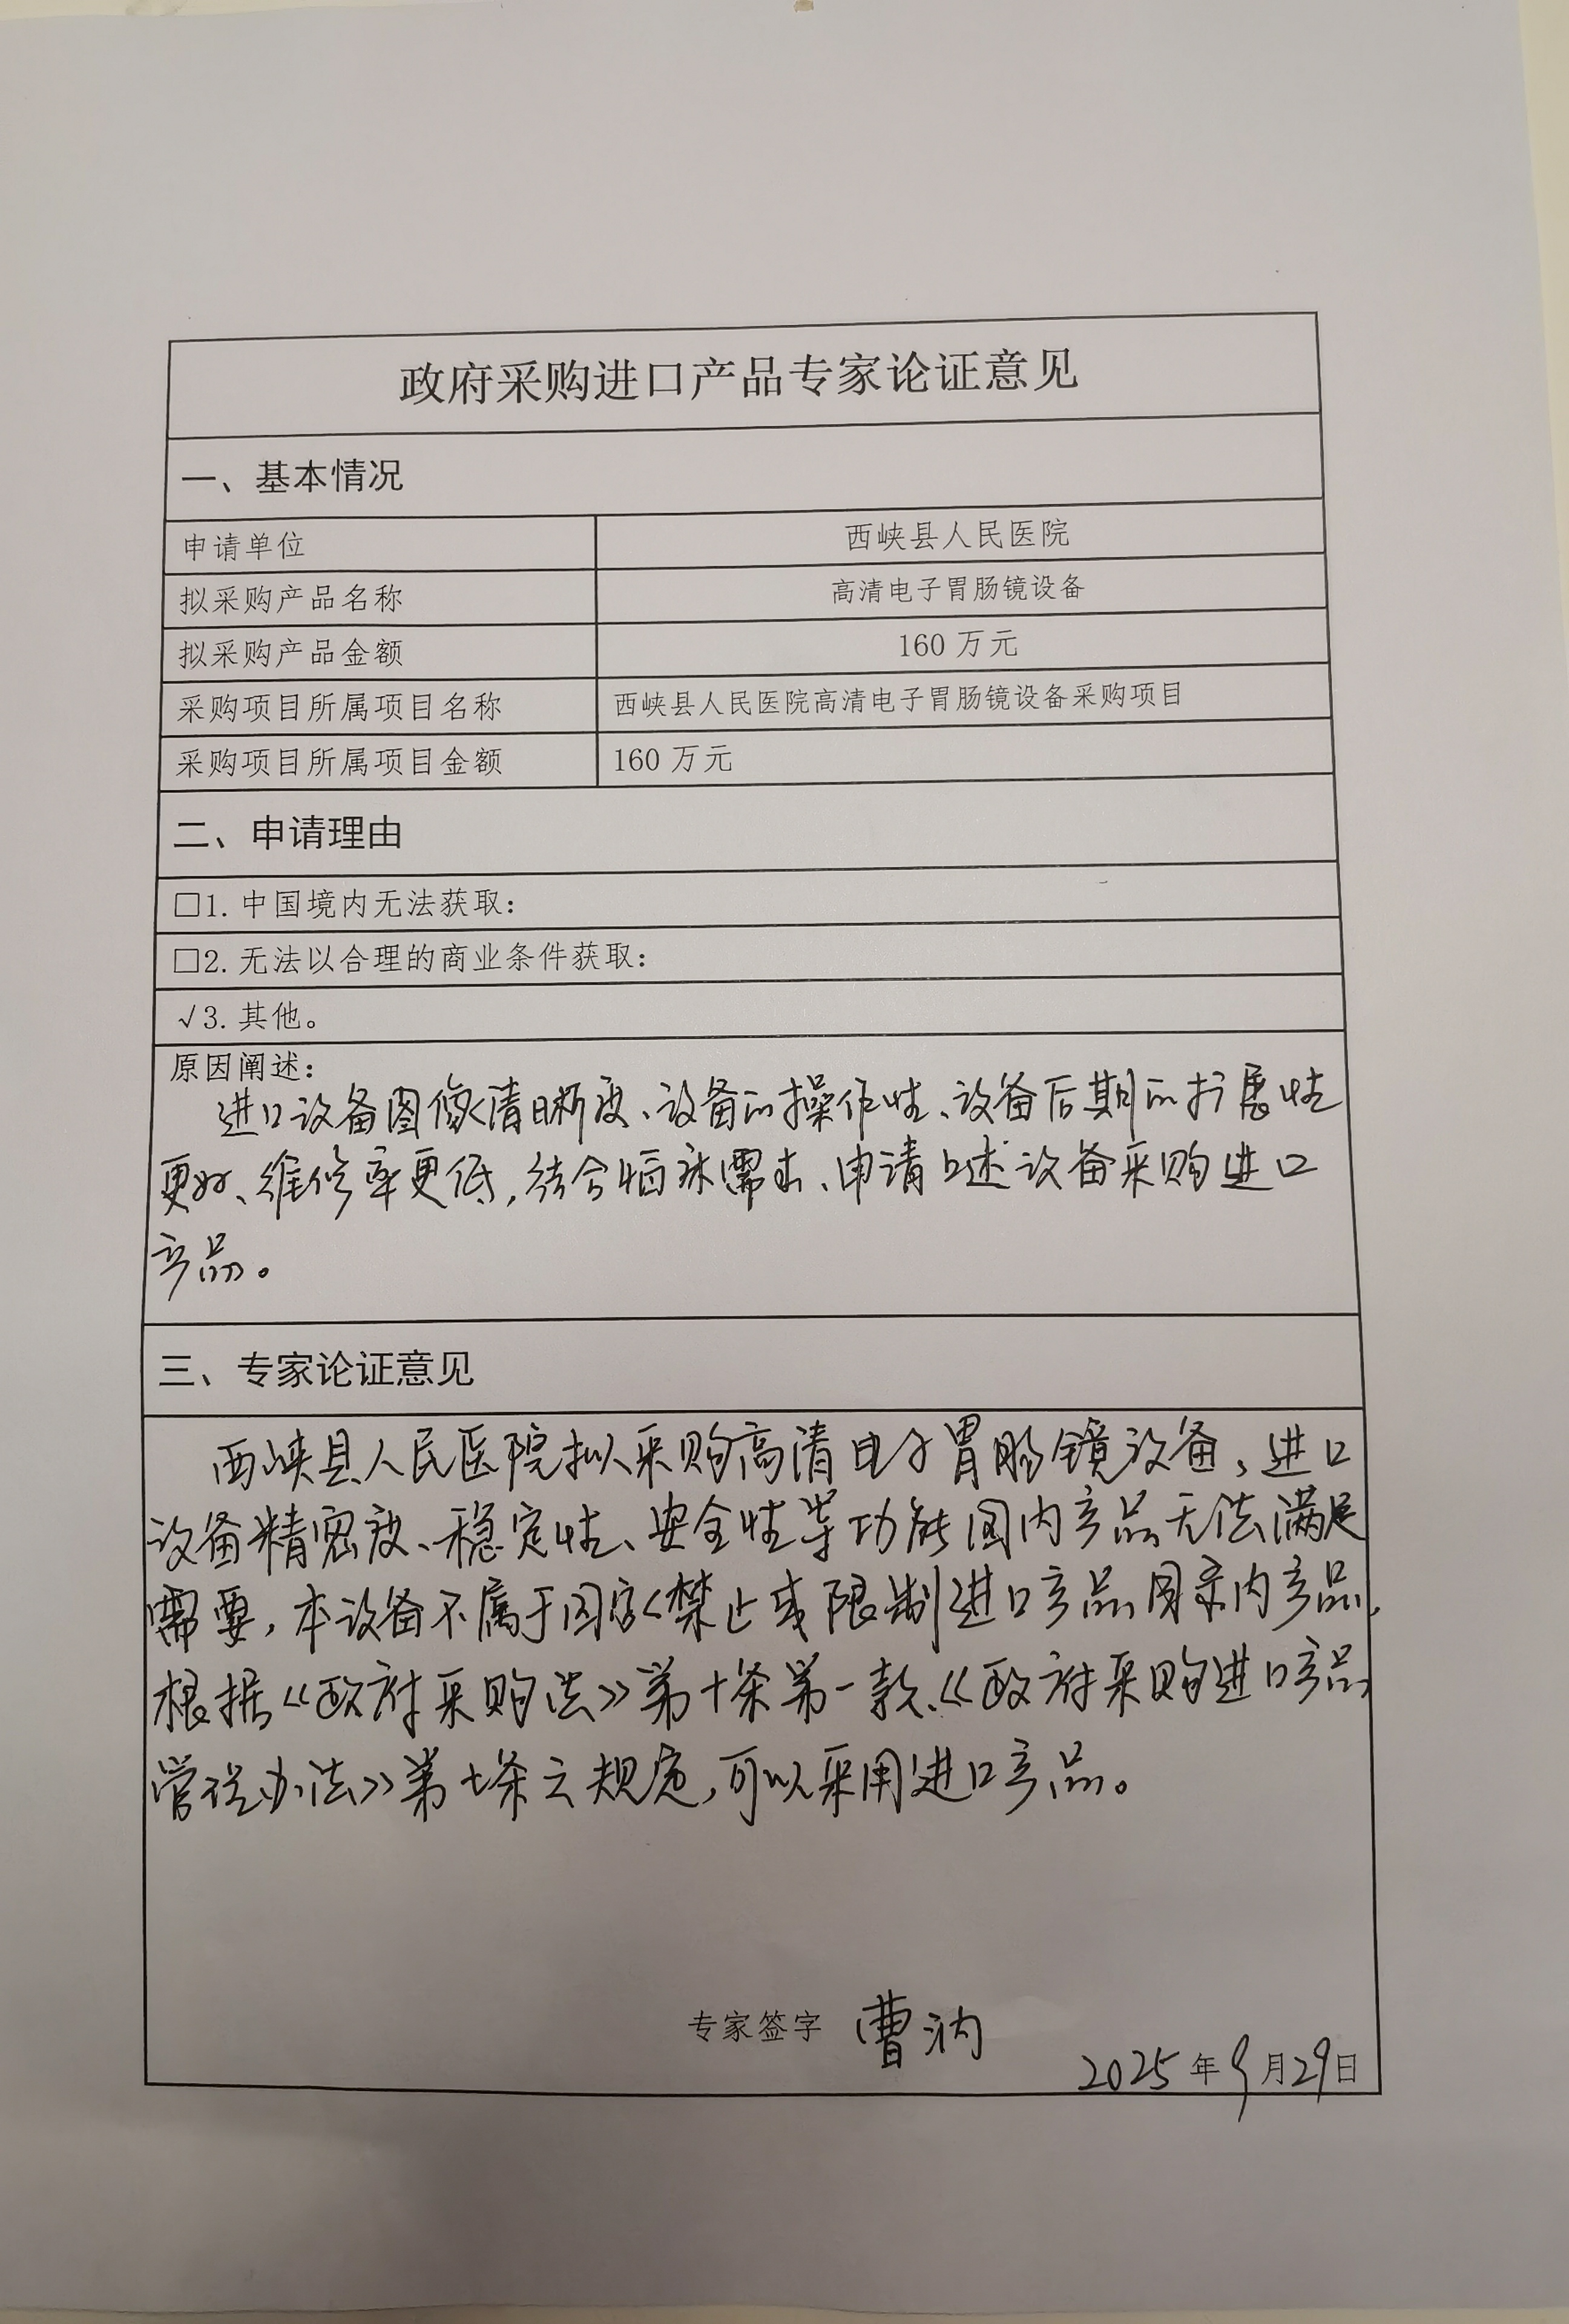 政府采购进口产品专家论证意见
一、基本情况
申请单位 西峡县人民医院
拟采购产品名称 高清电子胃肠镜设备
拟采购产品金额 160 万元
采购项目所属项目名称 西峡县人民医院高清电子胃肠镜设备采购项目
采购项目所属项目金额 160 万元
二、申请理由
□1. 中国境内无法获取：
□2. 无法以合理的商业条件获取：
√3. 其他。
原因阐述：
进口设备图像清晰度、设备的操作性、设备后期的扩展性
更好、维修率更低，结合临床需求、申请上述设备采购进口
产品。
三、专家论证意见
西峡县人民医院拟采购高清电子胃肠镜设备，进口
设备精密度、稳定性、安全性等功能国内产品无法满足
需要，本设备不属于国家禁止或限制进口产品目录内产品，
根据《政府采购法》第十条第一款、《政府采购进口产品
管理办法》第七条之规定，可以采用进口产品。
专家签字 曹
2025年9月29日